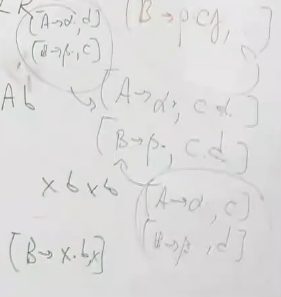 LR
[A→α·, d]
[B→β·, c]
[B→
Ab
[A→α·, c d]
[B→β·, c.d]
x b x b
[A→α·, c]
[B→β·, d]
[B→x·b,x]